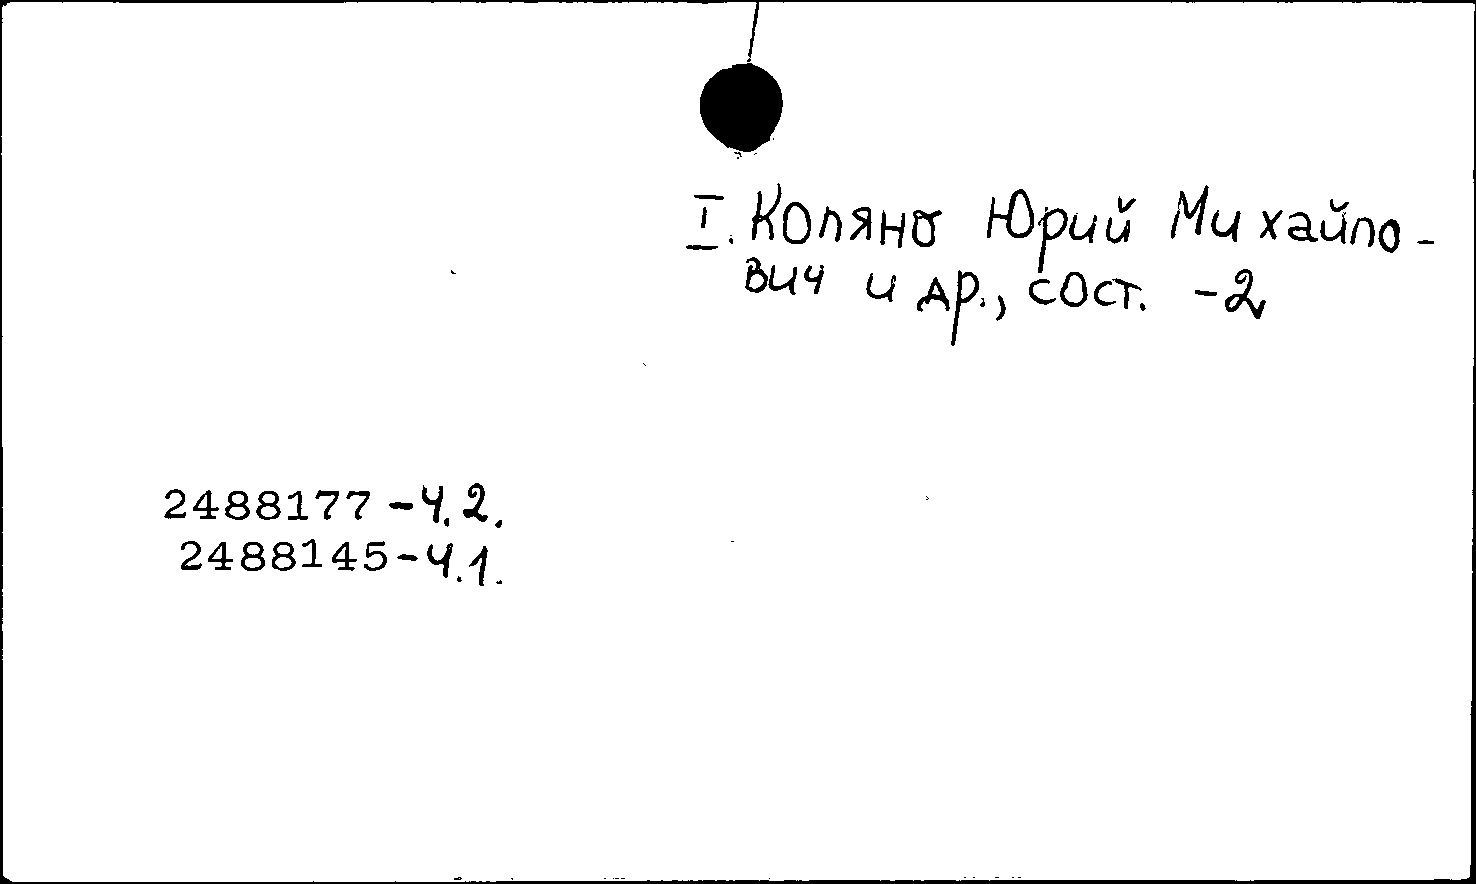 I. Коляно Юрий Михайло-
вич и др., сост. -2
2488177 -Ч.2.
2488145-Ч.1.